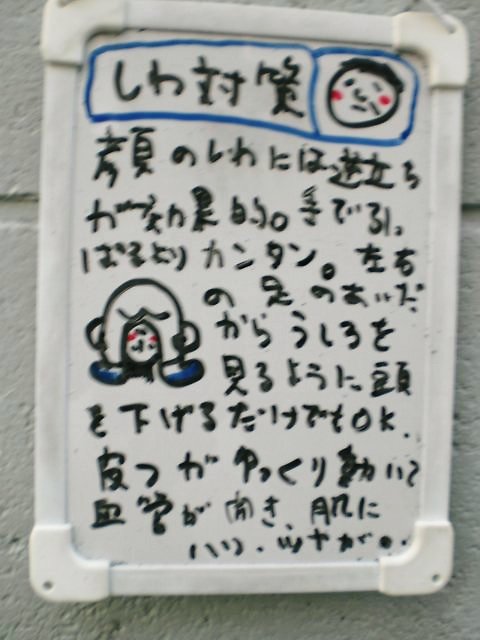 しわ対策
顔のしわには逆立ち
が効果的。手で引っ
ぱるよりカンタン。左右
の足のあいだ
からうしろを
見るように頭
を下げるだけでもOK.
皮フがゆっくり動いて
血管が開き、肌に
ハリ・ツヤが。